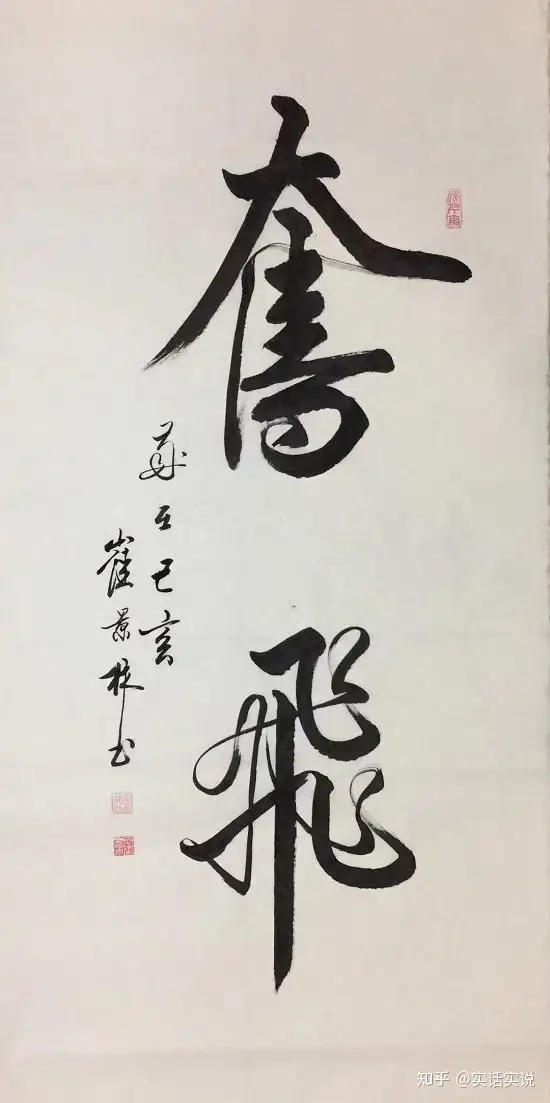 奮飛
歲在己亥
崔景株书
知乎 @实话实说